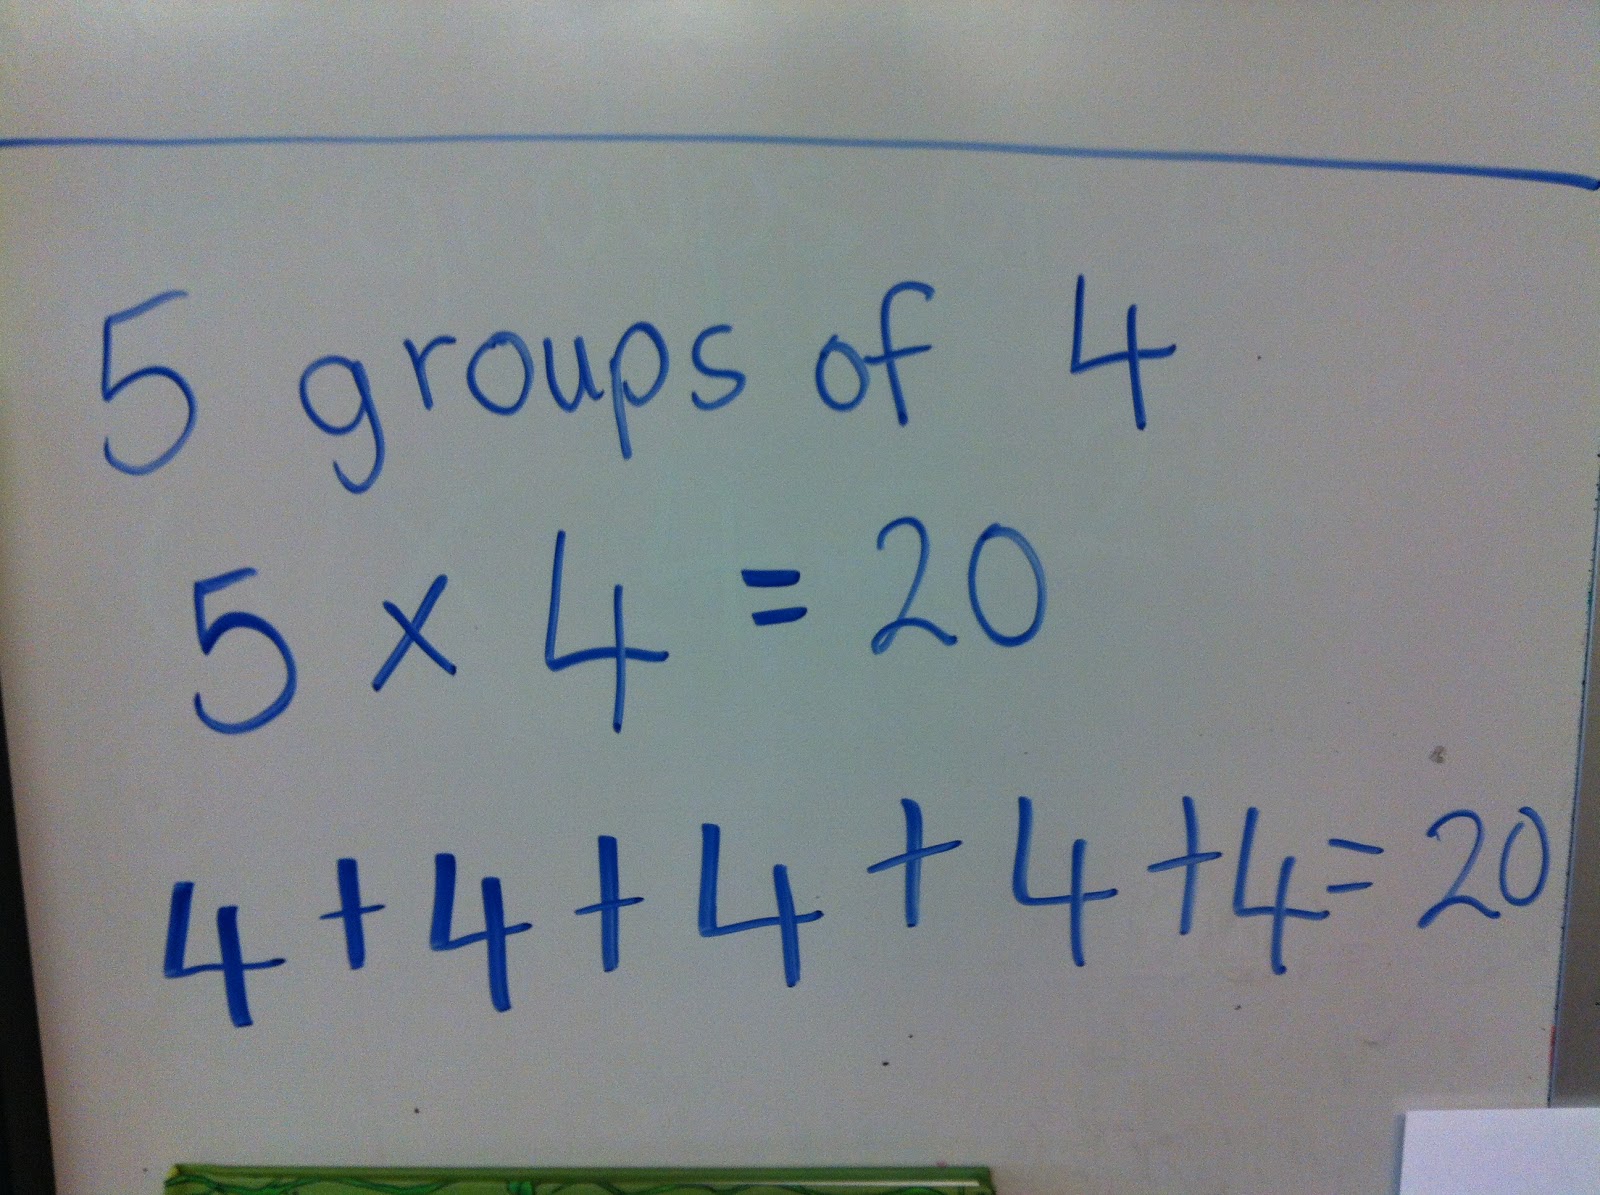 5 groups of 4
5 × 4 = 20
4 + 4 + 4 + 4 + 4 = 20